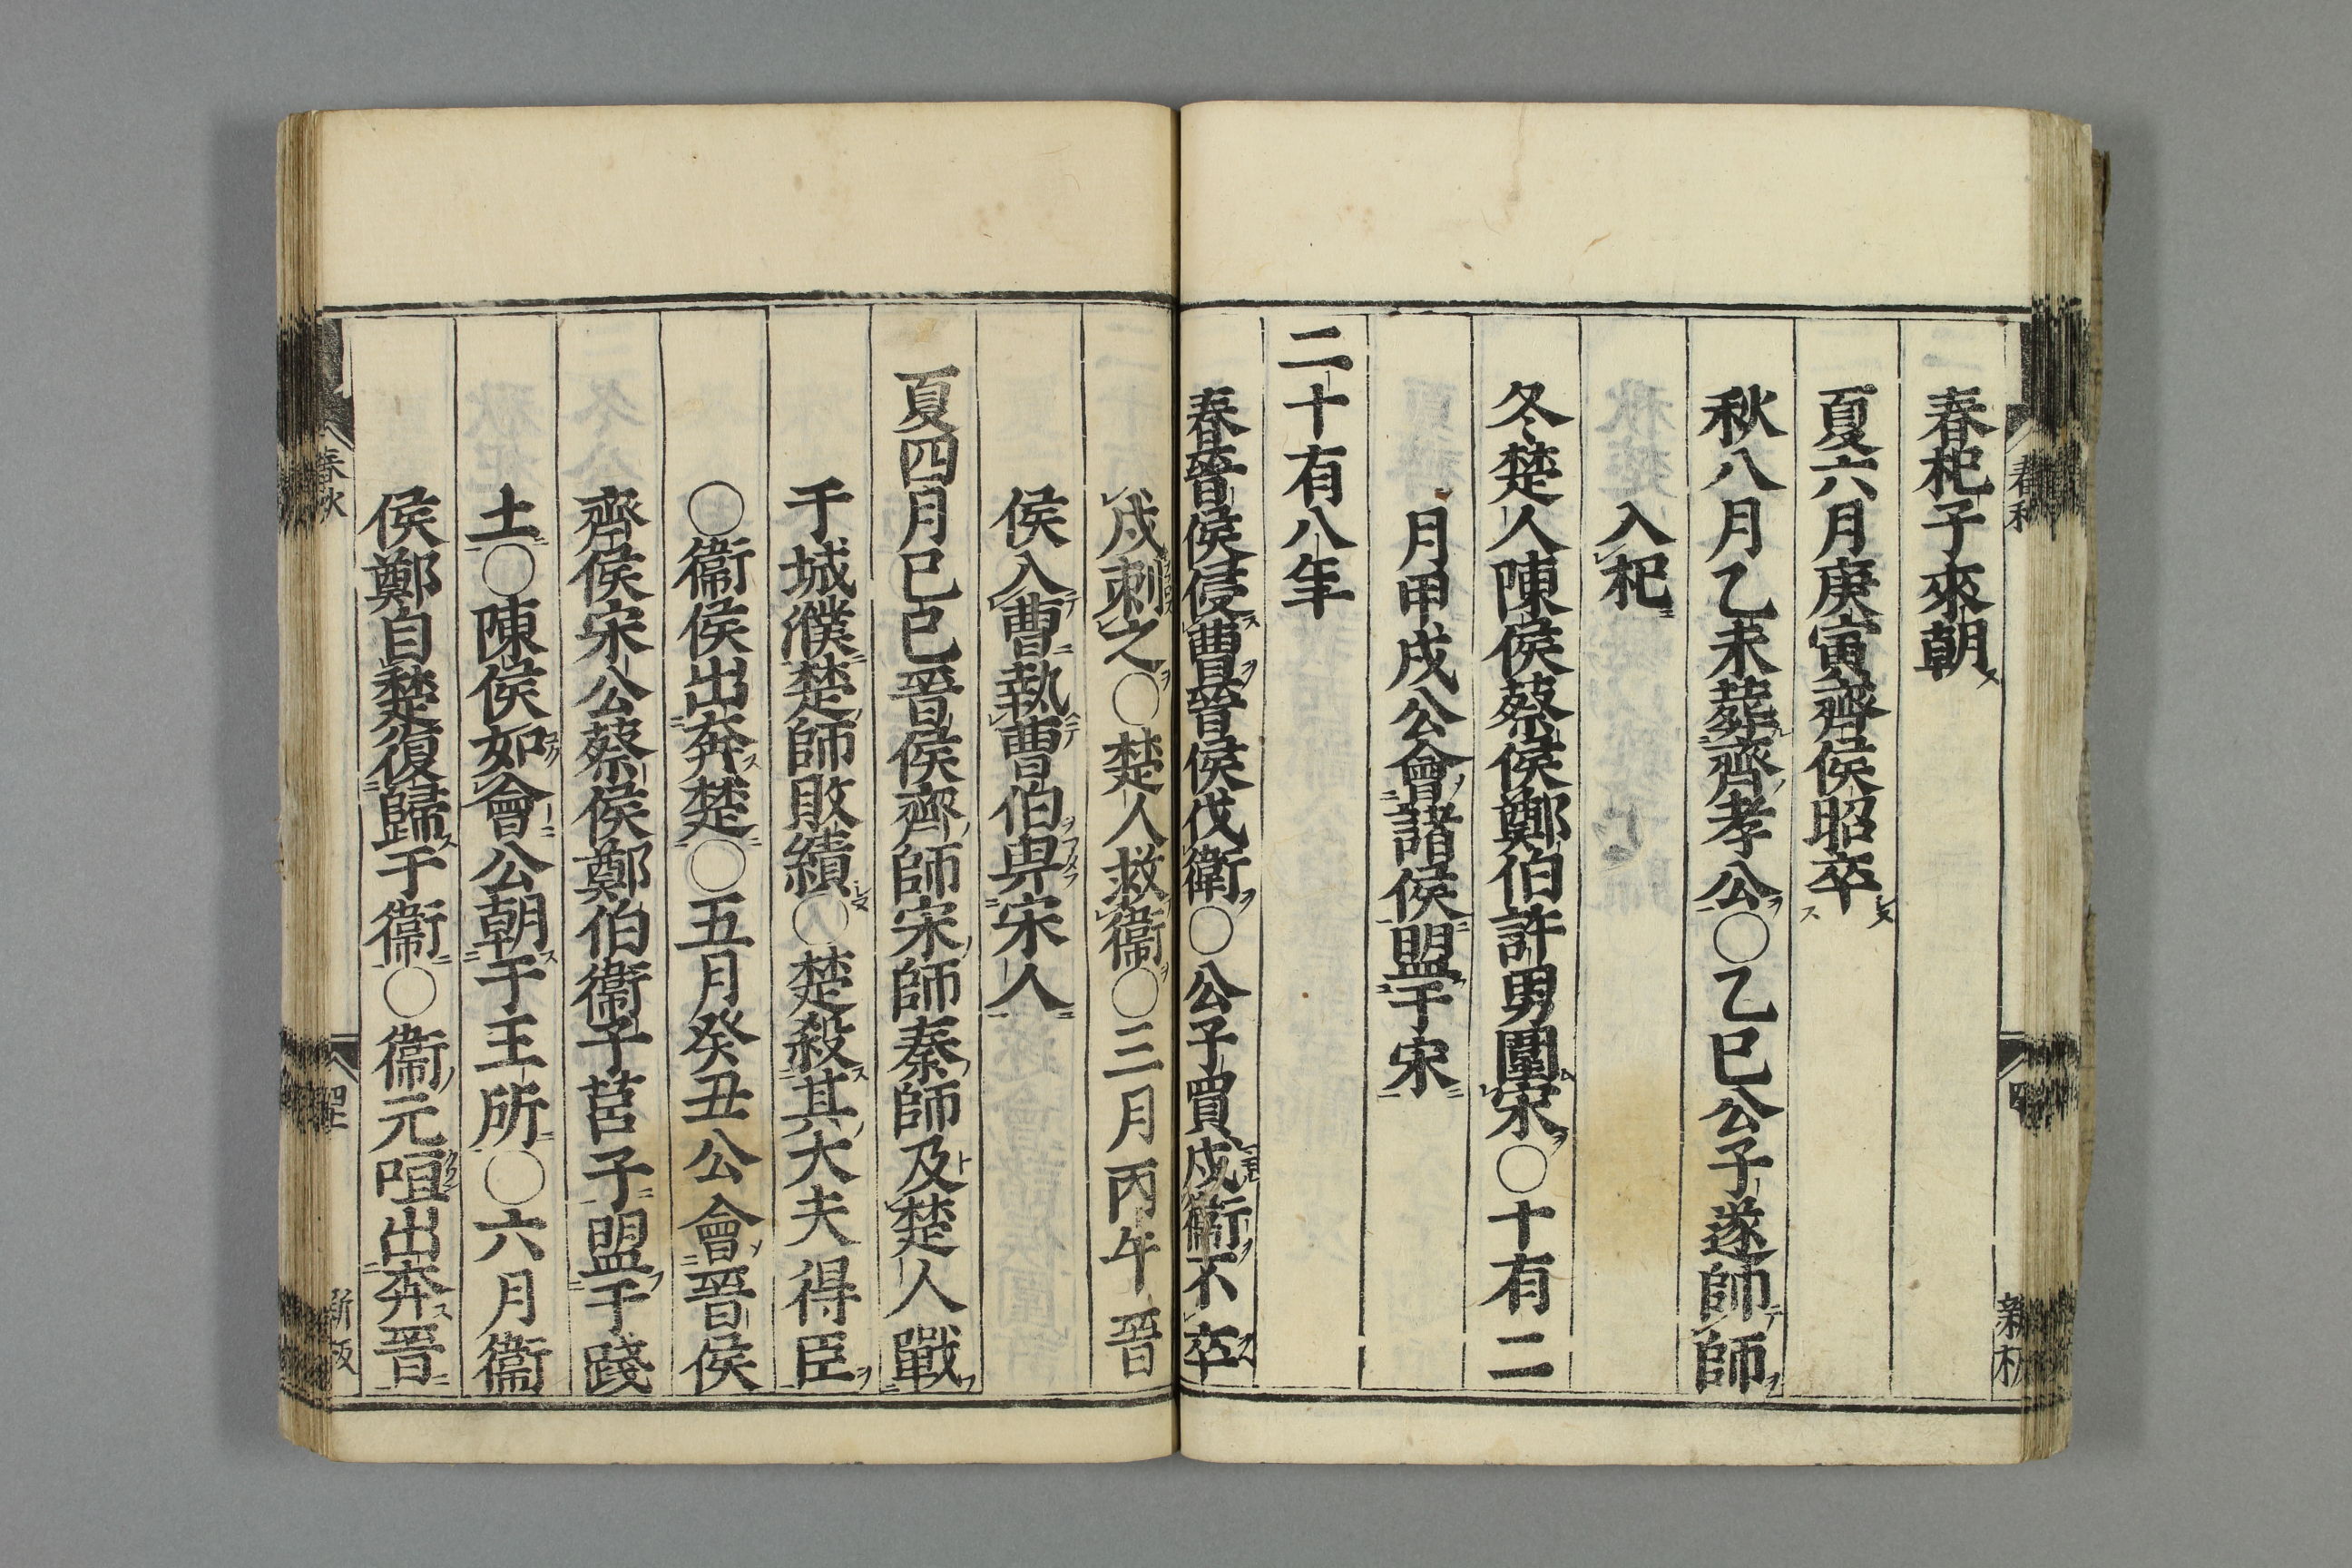 春杞子來朝
夏六月庚寅齊侯昭卒
秋八月乙未葬齊孝公○乙巳公子遂師師
入杞
冬楚人陳侯蔡侯鄭伯許男圍宋○十有二
月甲戌公會諸侯盟于宋
二十有八年
春晉侯侵曹晉侯伐衛○公子買戍衞不卒
戍刺之○楚人救衞○三月丙午晉
侯入曹執曹伯畀宋人
夏四月己巳晉侯齊師宋師秦師及楚人戰
于城濮楚師敗績○楚殺其大夫得臣
○衞侯出奔楚○五月癸丑公會晉侯
齊侯宋公蔡侯鄭伯衞子莒子盟于踐
土○陳侯如會公朝于王所○六月衞
侯鄭自楚復歸于衞○衞元咺出奔晉
春秋